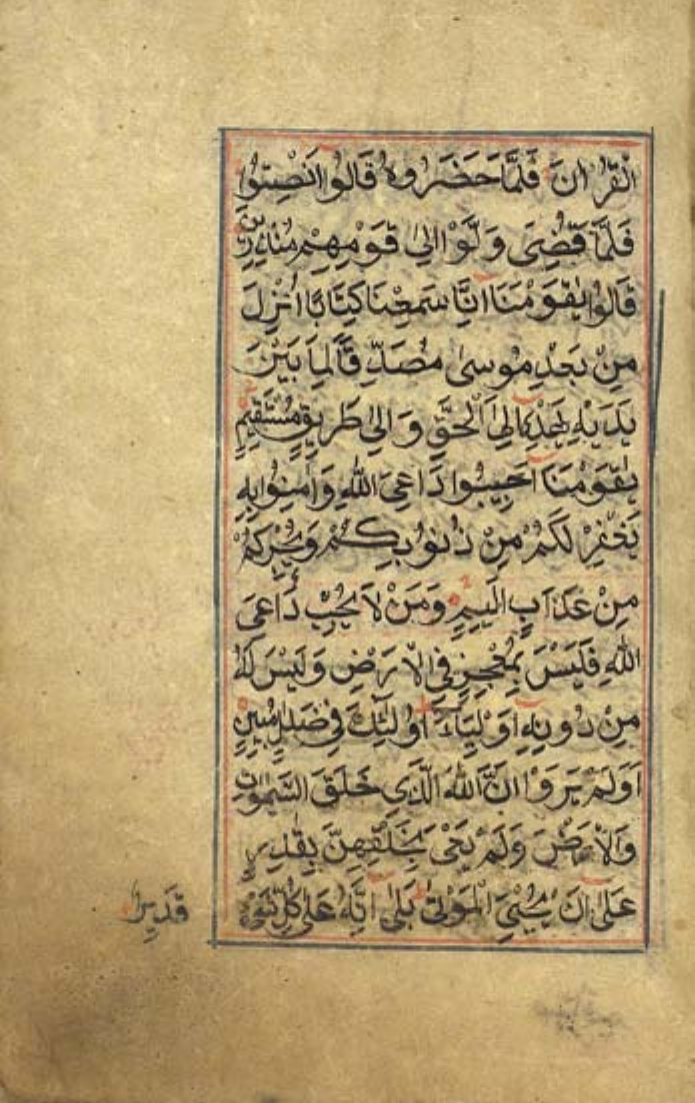 الْقُرْاٰنَ فَلَمَّا حَضَرُوهُ قَالُوا اَنْصِتُوا
فَلَمَّا قُضِىَ وَلَّوْا اِلٰى قَوْمِهِمْ مُنْذِرِينَ
قَالُوا يٰقَوْمَنَا اِنَّا سَمِعْنَا كِتَابًا اُنْزِلَ
مِنْ بَعْدِ مُوسٰى مُصَدِّقًا لِمَا بَيْنَ
يَدَيْهِ يَهْدِى اِلَى الْحَقِّ وَاِلٰى طَرِيقٍ مُسْتَقِيمٍ
يٰقَوْمَنَا اَجِيبُوا دَاعِىَ اللّٰهِ وَاٰمِنُوا بِهِ
يَغْفِرْ لَكُمْ مِنْ ذُنُوبِكُمْ وَيُجِرْكُمْ
مِنْ عَذَابٍ اَلِيمٍ وَمَنْ لَا يُجِبْ دَاعِىَ
اللّٰهِ فَلَيْسَ بِمُعْجِزٍ فِى الْاَرْضِ وَلَيْسَ لَهُ
مِنْ دُونِهِ اَوْلِيَاءُ اُولٰئِكَ فِى ضَلَالٍ مُبِينٍ
اَوَلَمْ يَرَوْا اَنَّ اللّٰهَ الَّذِى خَلَقَ السَّمٰوَاتِ
وَالْاَرْضَ وَلَمْ يَعْىَ بِخَلْقِهِنَّ بِقَادِرٍ
عَلٰى اَنْ يُحْيِىَ الْمَوْتٰى بَلٰى اِنَّهُ عَلٰى كُلِّ شَىْءٍ
قَدِيرٌ